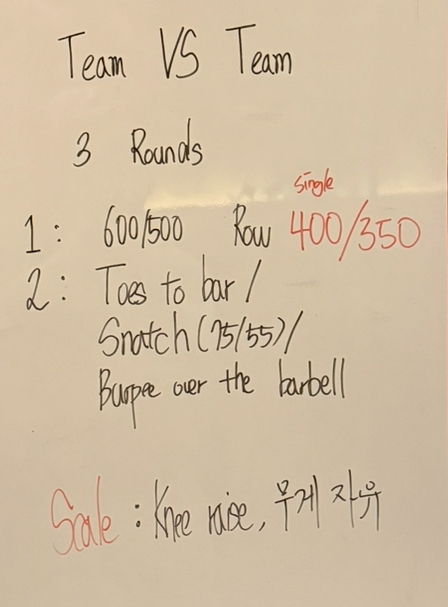 Team VS Team
3 Rounds
single
1: 600/500 Row 400/350
2: Toes to bar/
Snatch (75/55)/
Burpee over the barbell
Scale: Knee raise, 무게 자유